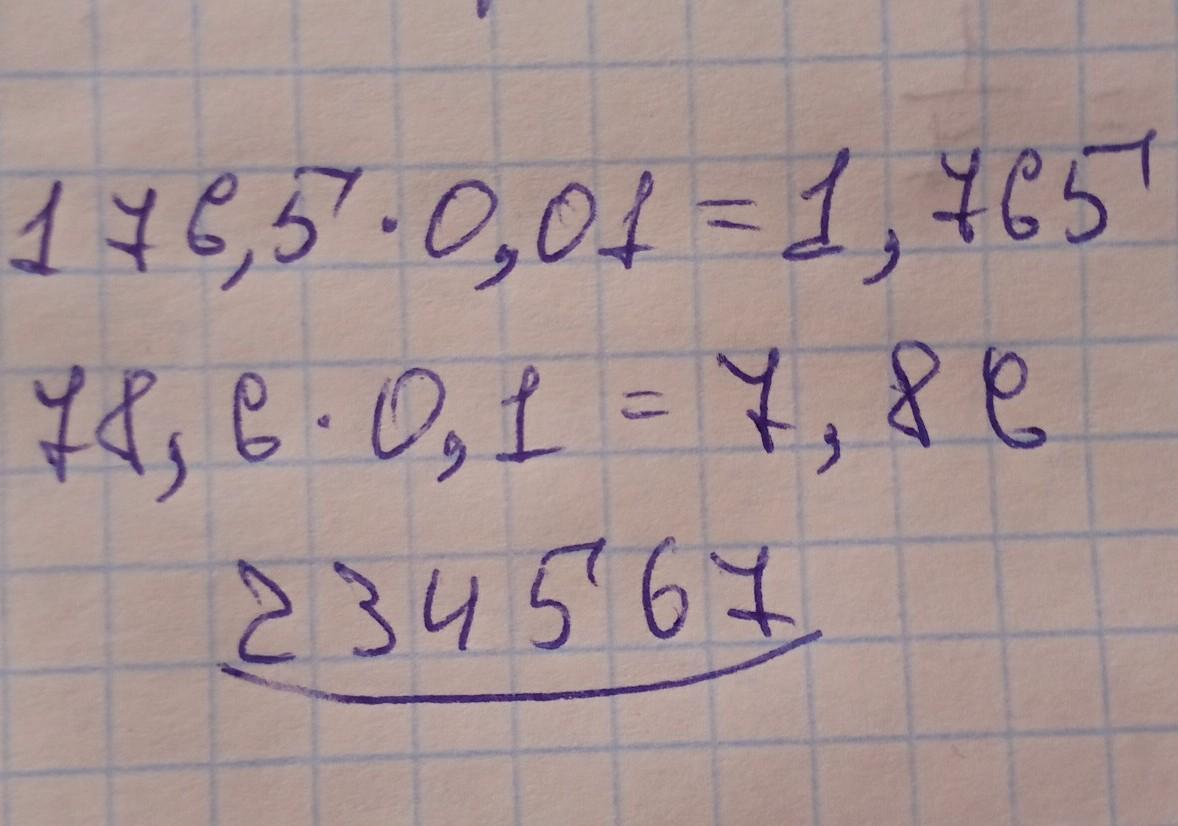 176,5·0,01=1,765
78,6·0,1=7,86
234567